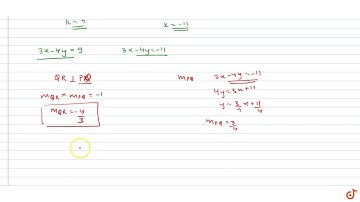 k = 9 k = -11
3x-4y = 9 3x-4y = -11
QR ⊥ PQ
mQR × mPQ = -1
mQR = -4/3
mPQ 3x-4y = -11
4y = 3x+11
y = 3/4 x + 11/4
mPQ = 3/4